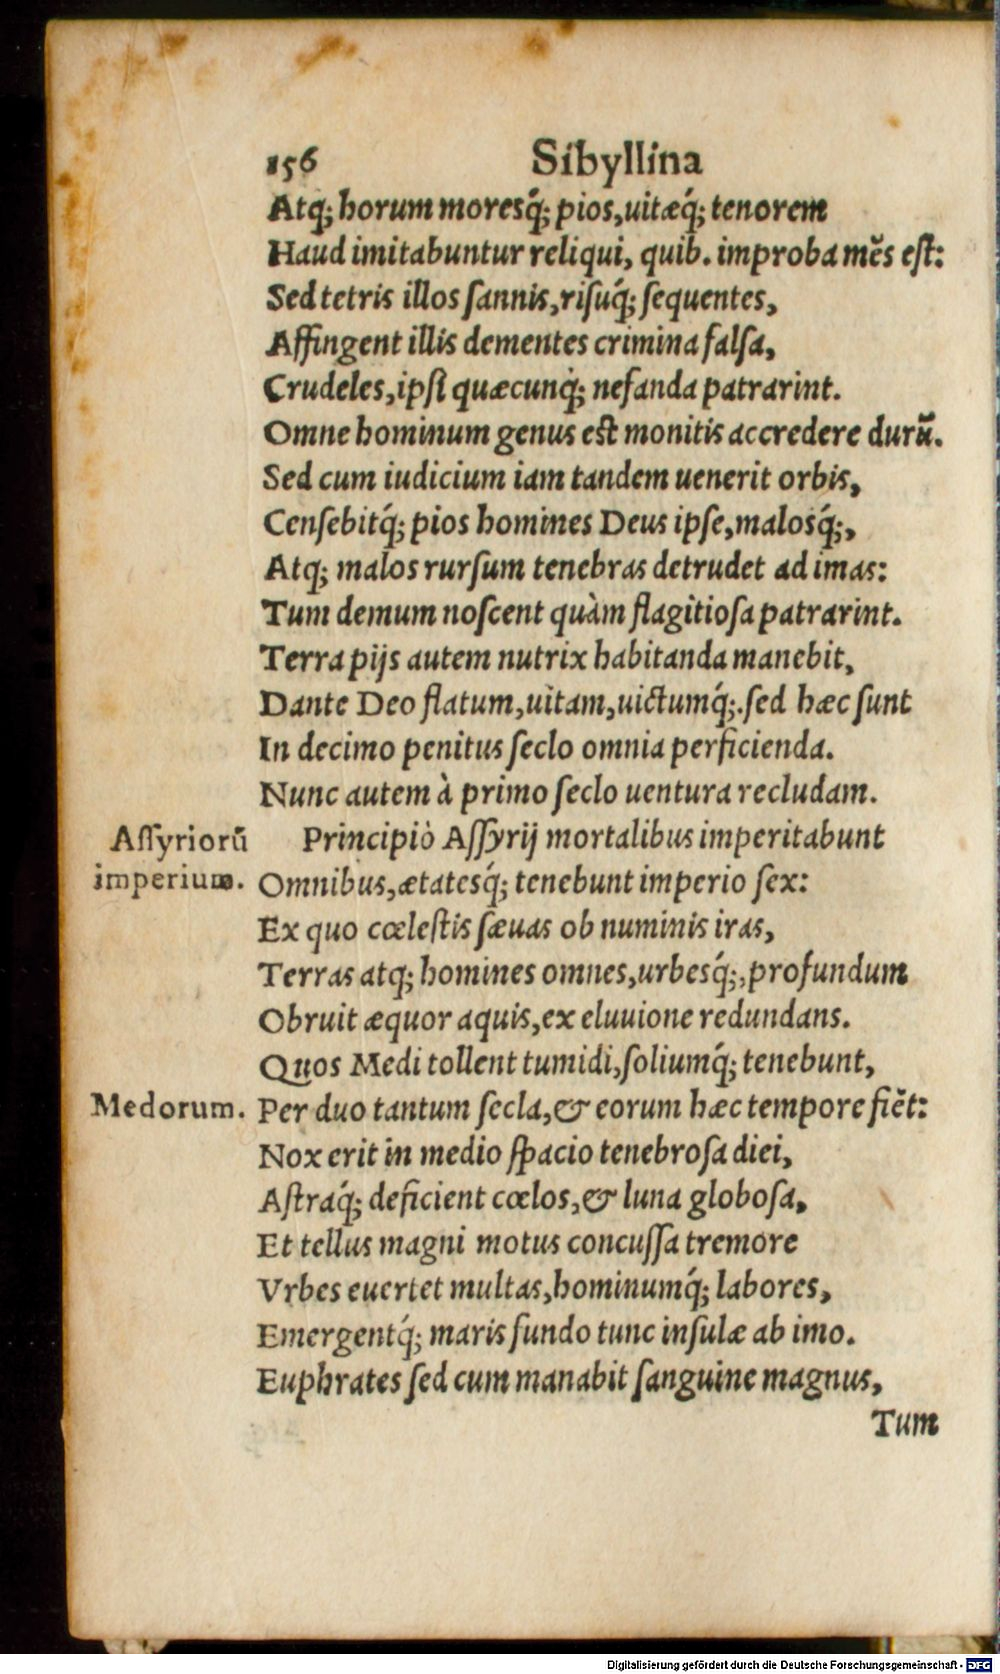 156 Sibyllina
Atq; horum moresq́; pios, uitæq́; tenorem
Haud imitabuntur reliqui, quib. improba mẽs eſt:
Sed tetris illos ſannis, riſuq́; ſequentes,
Affingent illis dementes crimina falſa,
Crudeles, ipſi quæcunq́; nefanda patrarint.
Omne hominum genus est monitis accredere durũ.
Sed cum iudicium iam tandem uenerit orbis,
Cenſebitq́; pios homines Deus ipſe, malosq́;,
Atq; malos rurſum tenebras detrudet ad imas:
Tum demum noſcent quàm flagitioſa patrarint.
Terra pijs autem nutrix habitanda manebit,
Dante Deo flatum, uitam, uictumq́;. ſed hæc ſunt
In decimo penitus ſeclo omnia perficienda.
Nunc autem à primo ſeclo uentura recludam.
Aſſyriorũ Principiò Aſſyrij mortalibus imperitabunt
imperium. Omnibus, ætatesq́; tenebunt imperio ſex:
Ex quo cœleſtis ſæuas ob numinis iras,
Terras atq; homines omnes, urbesq́;, profundum
Obruit æquor aquis, ex eluuione redundans.
Quos Medi tollent tumidi, ſoliumq́; tenebunt,
Medorum. Per duo tantum ſecla, & eorum hæc tempore fiẽt:
Nox erit in medio ſpacio tenebroſa diei,
Aſtraq́; deficient cœlos, & luna globoſa,
Et tellus magni motus concuſſa tremore
Vrbes euertet multas, hominumq́; labores,
Emergentq́; maris fundo tunc inſulæ ab imo.
Euphrates ſed cum manabit ſanguine magnus,
Tum
Digitalisierung gefördert durch die Deutsche Forschungsgemeinschaft - DFG